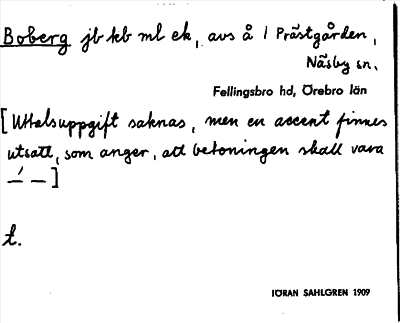 Boberg jb kb ml ek, avs å / Prästgården,
Näsby sn,
Fellingsbro hd, Örebro län
[Uttalsuppgift saknas, men en accent finnes
utsatt, som anger, att betoningen skall vara
— ́ —]
t.
JÖRAN SAHLGREN 1909